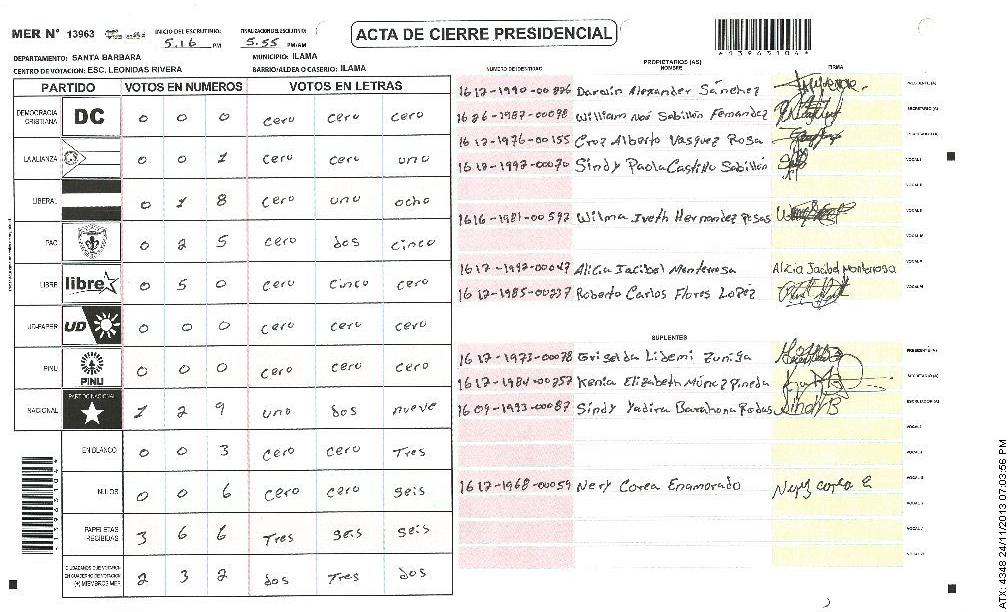 MER N° 13963 INICIO DEL ESCRUTINIO: 5.16 PM FINALIZACION DEL ESCRUTINIO: 5.55 PM/AM ACTA DE CIERRE PRESIDENCIAL
DEPARTAMENTO: SANTA BARBARA MUNICIPIO: ILAMA
CENTRO DE VOTACION: ESC. LEONIDAS RIVERA BARRIO/ALDEA O CASERIO: ILAMA
PARTIDO VOTOS EN NUMEROS VOTOS EN LETRAS
DEMOCRACIA CRISTIANA DC 0 0 0 cero cero cero
LA ALIANZA 0 0 1 cero cero uno
LIBERAL 0 1 8 cero uno ocho
PAC 0 2 5 cero dos cinco
LIBRE libre 0 5 0 cero cinco cero
UD-FAPER UD 0 0 0 cero cero cero
PINU PINU 0 0 0 cero cero cero
NACIONAL PARTIDO NACIONAL 1 2 9 uno dos nueve
EN BLANCO 0 0 3 cero cero Tres
NULOS 0 0 6 cero cero seis
PAPELETAS RECIBIDAS 3 6 6 Tres seis seis
CIUDADANOS QUE VOTARON EN CUADERNO DE VOTACION (+) MIEMBROS MER 2 3 2 dos Tres dos
NUMERO DE IDENTIDAD PROPIETARIOS (AS) NOMBRE FIRMA
Darwin Alexander Sánchez PRESIDENTE (A)
William Noé Sabillón Fernandez SECRETARIO (A)
1617-1976-00155 Cruz Alberto Vasquez Rosa ESCRUTADOR (A)
1617-1992-00070 Sindy Paola Castillo Sabillón VOCAL I
VOCAL II
1616-1981-00592 Wilma Iveth Hernandez Rosas
1617-1992-00047 Alicia Jacibel Monterrosa Alicia Jacibel Monterrosa
1617-1985-00237 Roberto Carlos Flores López
SUPLENTES
1617-1973-00078 Griselda Lidemi Zuniga PRESIDENTE (A)
1617-1984-00257 Kenia Elizabeth Múnoz Pineda SECRETARIO (A)
1609-1993-00087 Sindy Yadira Barahona Rodas Sindy B ESCRUTADOR (A)
1617-1968-00059 Nery Corea Enamorado Nery corea E
ATX: 4348 24/11/2013 07:03:56 PM